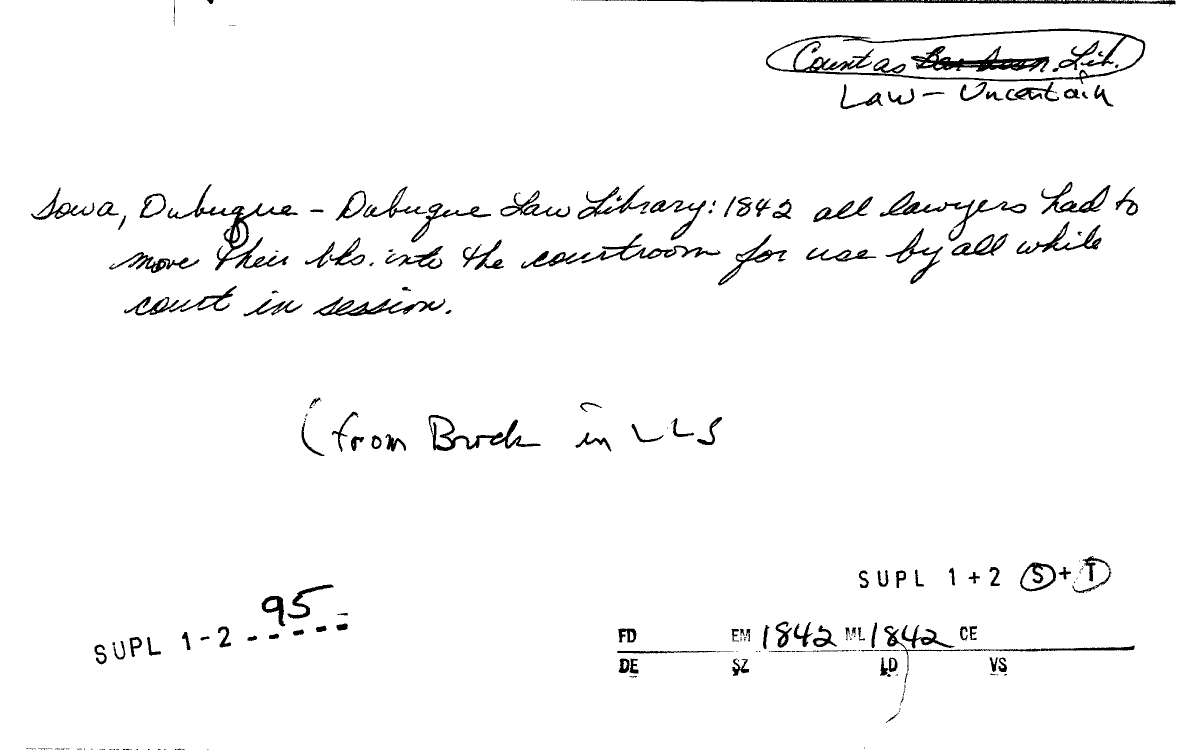 Count as Lib.
Law – Uncertain
Iowa, Dubuque – Dubuque Law Library: 1842 all lawyers had to
move their bks. into the courtroom for use by all while
court in session.
(from Brock in LLS
SUPL 1+2 S+T
SUPL 1-2 95
FD EM 1842 ML 1842 CE
DE SZ LD VS